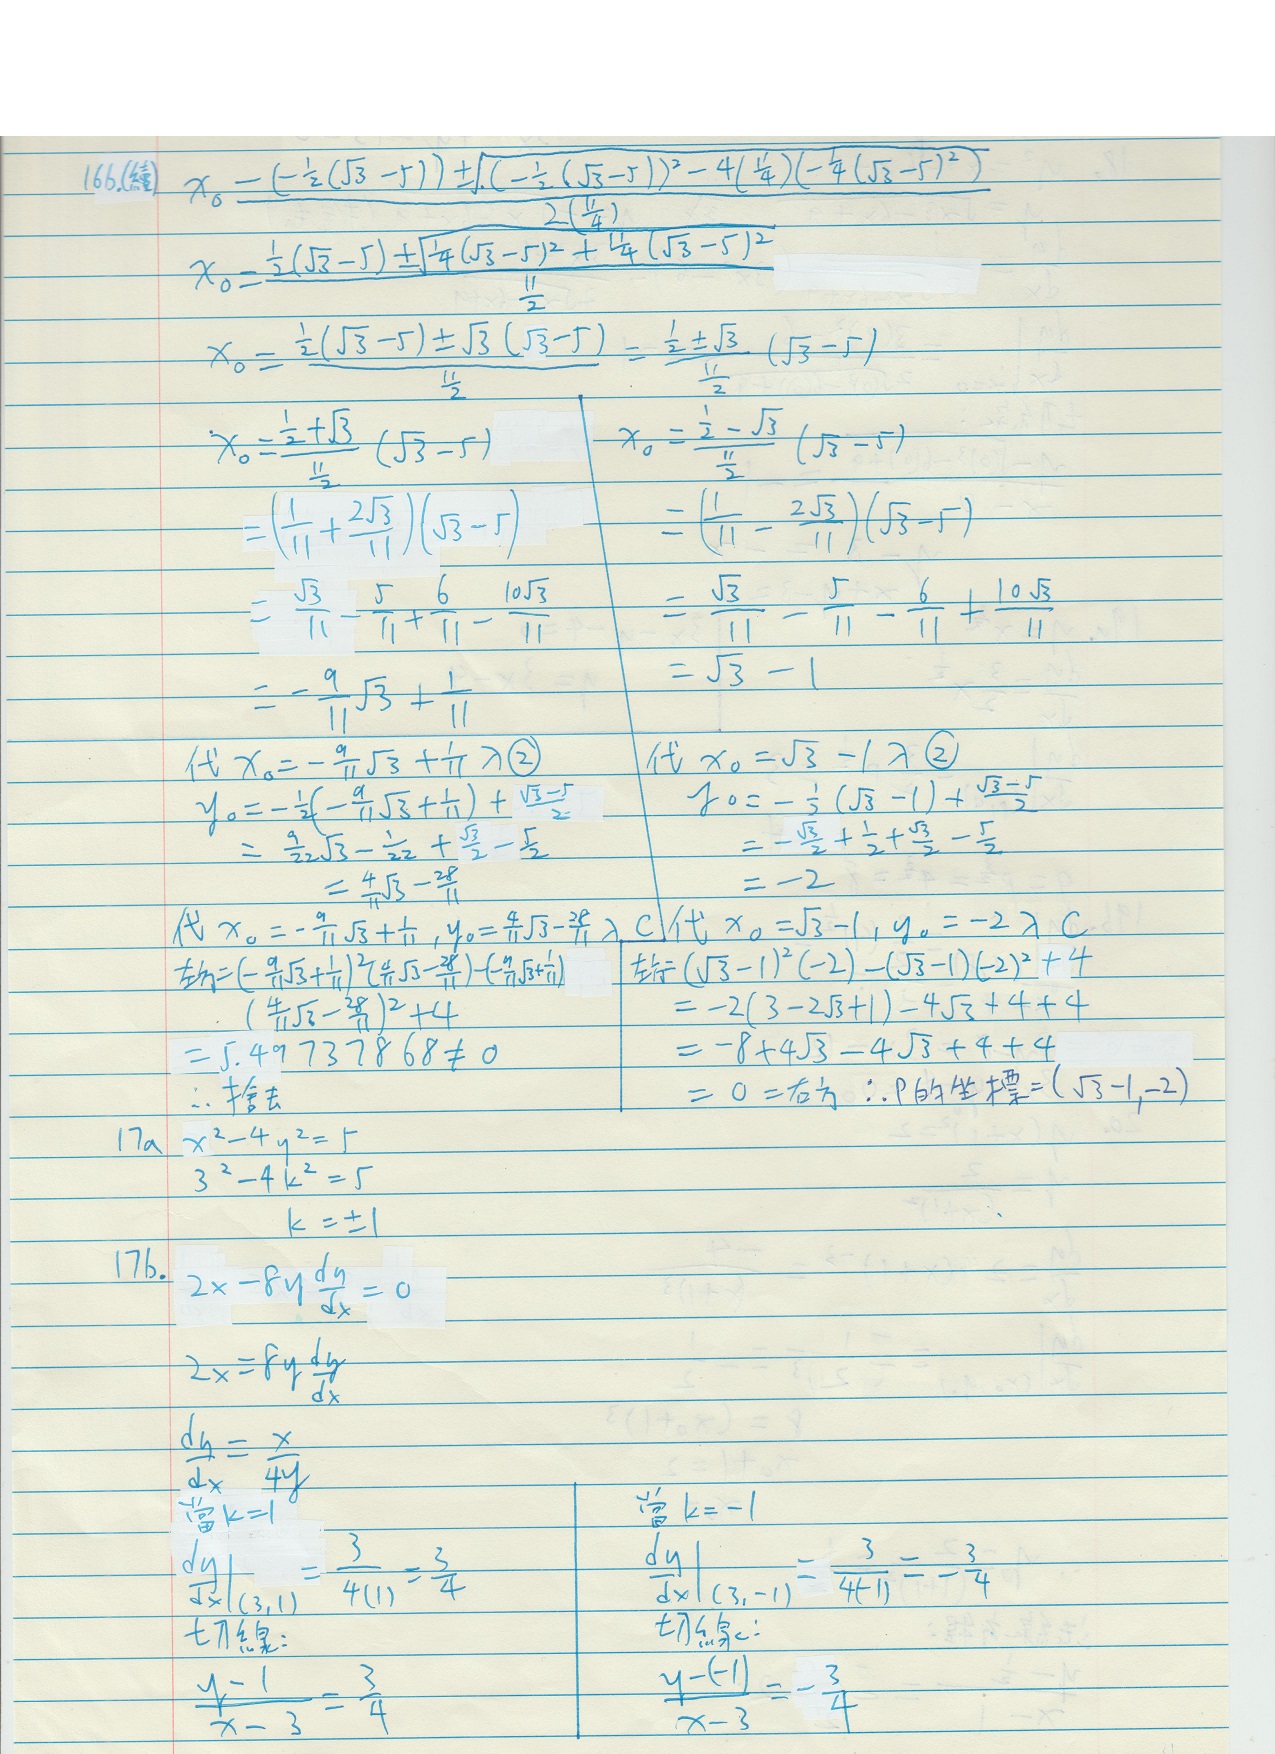 16b.(續) x₀ = (-(-1/2(√3-5)) ± √((-1/2(√3-5))² - 4(11/4)(-1/4(√3-5)²))) / 2(11/4)
x₀ = (1/2(√3-5) ± √(1/4(√3-5)² + 11/4(√3-5)²)) / (11/2)
x₀ = (1/2(√3-5) ± √3(√3-5)) / (11/2) = (1/2 ± √3) / (11/2) (√3-5)
x₀ = (1/2 + √3) / (11/2) (√3-5)
= (1/11 + 2√3/11)(√3-5)
= √3/11 - 5/11 + 6/11 - 10√3/11
= -9/11 √3 + 1/11
代 x₀ = -9/11 √3 + 1/11 入②
y₀ = -1/2(-9/11 √3 + 1/11) + (√3-5)/2
= 9/22 √3 - 1/22 + √3/2 - 5/2
= 4/11 √3 - 28/11
代 x₀ = -9/11 √3 + 1/11, y₀ = 4/11 √3 - 28/11 入 C
左方 = (-9/11 √3 + 1/11)²(4/11 √3 - 28/11) - (-9/11 √3 + 1/11)
(4/11 √3 - 28/11)² + 4
= 5.497737868 ≠ 0
∴ 捨去
x₀ = (1/2 - √3) / (11/2) (√3-5)
= (1/11 - 2√3/11)(√3-5)
= √3/11 - 5/11 - 6/11 + 10√3/11
= √3 - 1
代 x₀ = √3 - 1 入②
y₀ = -1/2(√3-1) + (√3-5)/2
= -√3/2 + 1/2 + √3/2 - 5/2
= -2
代 x₀ = √3-1, y₀ = -2 入 C
左方 = (√3-1)²(-2) - (√3-1)(-2)² + 4
= -2(3-2√3+1) - 4√3 + 4 + 4
= -8 + 4√3 - 4√3 + 4 + 4
= 0 = 右方 ∴P的坐標 = (√3-1, -2)
17a x² - 4y² = 5
3² - 4k² = 5
k = ±1
17b. 2x - 8y dy/dx = 0
2x = 8y dy/dx
dy/dx = x/4y
當 k=1
dy/dx|(3,1) = 3/4(1) = 3/4
切線:
(y-1)/(x-3) = 3/4
當 k=-1
dy/dx|(3,-1) = 3/4(-1) = -3/4
切線:
(y-(-1))/(x-3) = -3/4